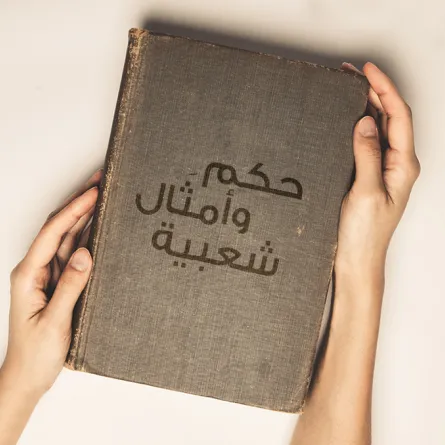 حكم
وأمثَال
شعبية